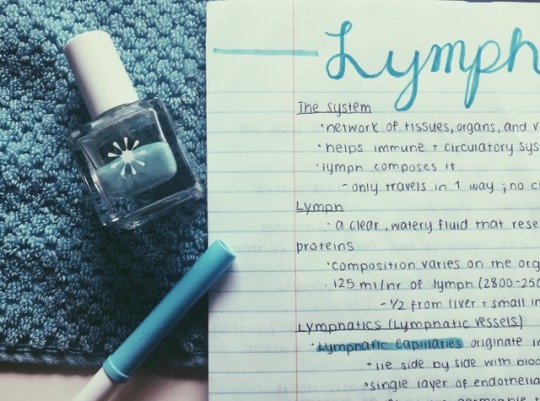 Lymph
The system
·network of tissues, organs, and v
·helps immune + circulatory sys
·lymph composes it
-only travels in 1 way ; no c
Lymph
· a clear, watery fluid that rese
proteins
·composition varies on the org
· 125 ml/hr of lymph (2800-250
-1/2 from liver + small in
Lymphatics (Lymphatic vessels)
·Lymphatic capillaries originate in
·lie side by side with bloo
·single layer of endothelia